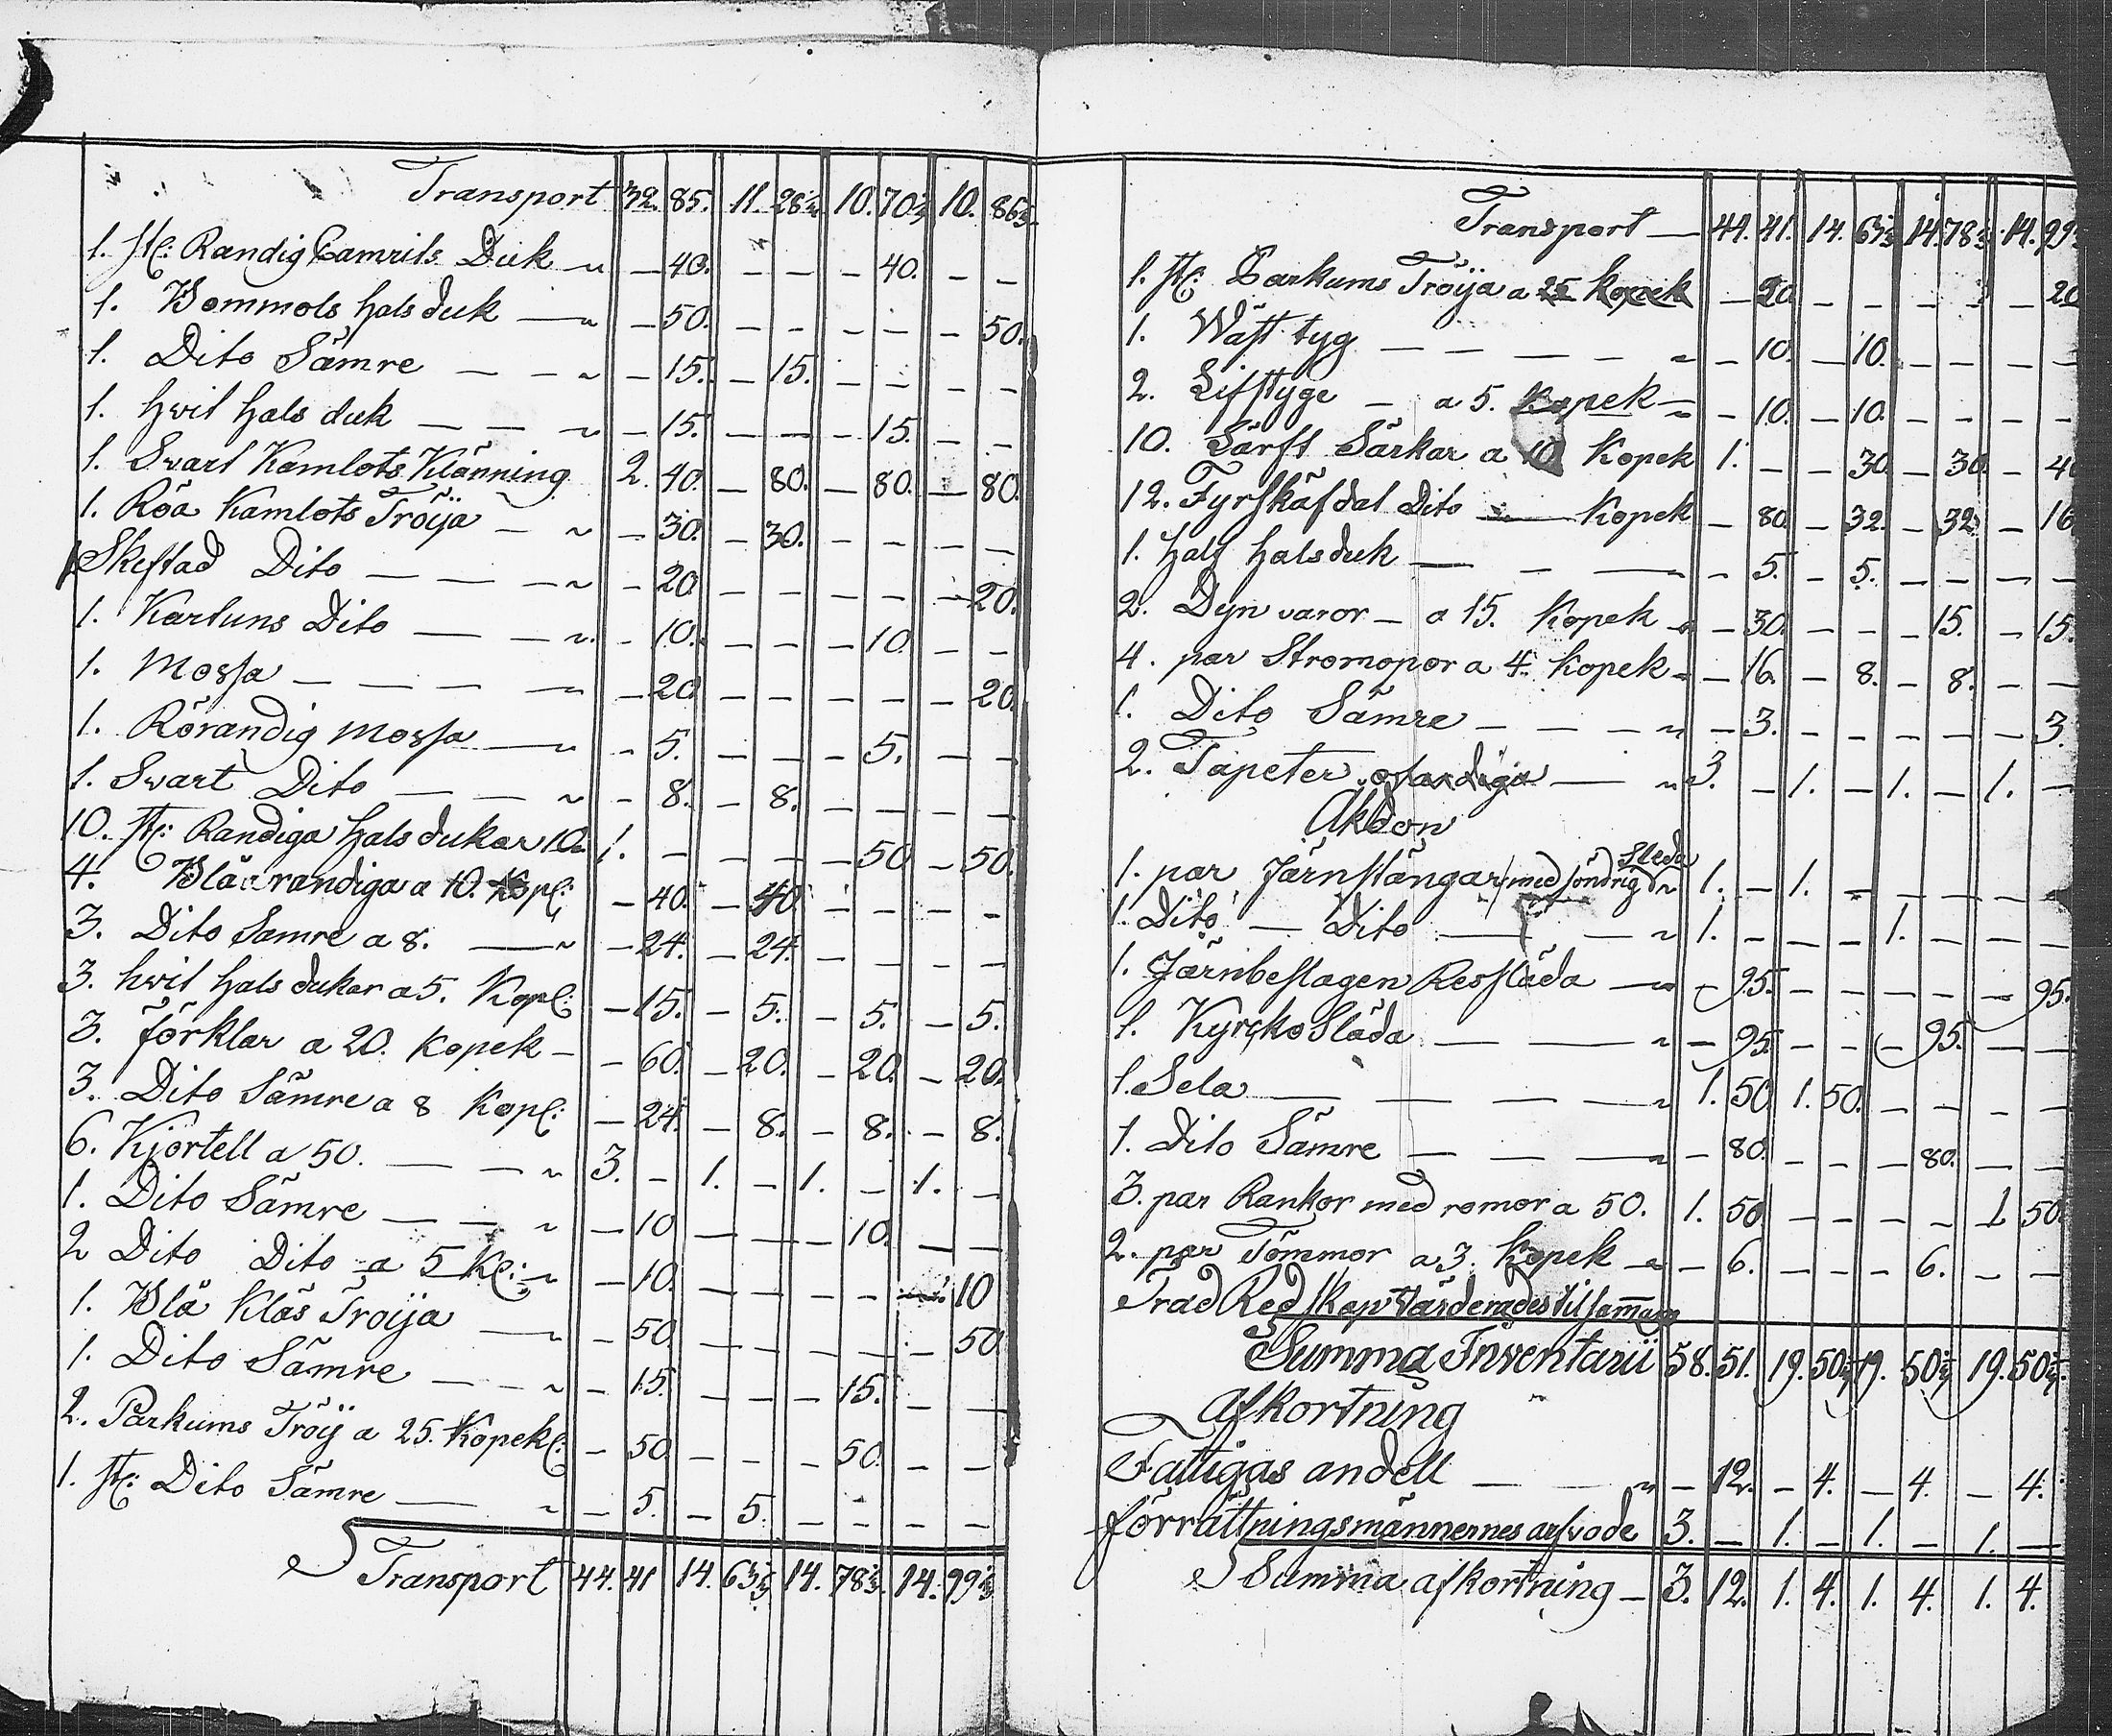 Transport 32. 85. 11. 28 1/2 10. 70 1/2 10. 86 1/2
1. st: Randig Camrits Duk — — 40. — — — 40. — —
1. Wommols hals duk — — 50. — — — — — 50.
1. Dito Sämre — — — 15. — 15. — — — —
1. hvit hals duk — — — 15. — — — 15. — —
1. Svart Kamlots Klänning 2. 40. — 80. — 80. — 80.
1. Röa Kamlots Tröija — — 30. — 30. — — — —
1 Skeftad Dito — — — 20 — — — — — 20.
1. Kartuns Dito — — — 10. — — — 10. — —
1. Mossa — — — — 20 — — — — — 20.
1. Rörandig mossa — — 5. — — — 5. — —
1. Svart Dito — — — 8. — 8. — — — —
10. st: Randiga hals dukar 10 1. — — — — 50 — 50.
4. Blå randiga a 10. Kop: — 40. — 40 — — — —
3. Dito Samre a 8. — — 24. — 24. — — — —
3. hvit hals dukar a 5. Kop: — 15. — 5. — 5. — 5.
3. förklar a 20. Kopek — — 60. — 20. — 20. — 20.
3. Dito Sämre a 8 Kop: — 24. — 8. — 8. — 8.
6. Kjortell a 50. — — 3. — 1. — 1. — 1. —
1. Dito Sämre — — — 10 — — — 10. — —
2 Dito Dito a 5 K: — 10. — — — — — 10
1. Blå Kläs Troija — — 50. — — — — — 50
1. Dito Sämre — — — 15. — — — 15. — —
2. Parkums Tröij a 25. Kopek: — 50 — — — 50. — —
1. st: Dito Sämre — — 5. — 5. — — — —
Transport 44. 41 14. 63 1/2 14. 78 1/2 14. 99 1/2
Transport — 44. 41. 14. 63 1/2 14. 78 1/2 14. 99
1. st: Parkums Tröija a 25 Kopek — 20 — — — — — 20
1. Wäft tyg — — — — — 10. — 10. — — — —
2. Lifstyge — a 5. Kopek — — 10. — 10. — — — —
10. Lärft Särkar a 10 Kopek 1. — — 30 — 30 — 40
12. Fyrskäf dal Dito — Kopek — 80. — 32. — 32 — 16
1. half halsduk — — — 5. — 5. — — — —
2. Dyn varor — a 15. Kopek — 30. — — — 15. — 15.
4. par Stromopor a 4. Kopek — — 16. — 8. — 8. — —
1. Dito Sämre — — — — 3. — — — — — 3.
2. Tapeter — 3. — 1. — 1. — 1. —
Akdon
1. par Järnstångar med söndrig Släda 1. — 1. — — — — —
1. Dito — Dito — — 1. — — — 1. — — —
1. Järnbeslagen Resslåda — — 95. — — — — — 95.
1. Kyrcko Släda — — — 95. — — — 95. — —
1. Sela — — — — 1. 50 1. 50. — — — —
1. Dito Sämre — — — 80. — — — 80. — —
3. par Rankor med romor a 50. 1. 50 — — — — 1 50.
2. par Tömmor a 3. Kopek — — 6. — — — 6. — —
Träd Redskap Värderades til sammam
Summa Inventarii 58. 51. 19. 50 1/2 19. 50 1/2 19. 50 1/2.
Afkortning
Fattigas andell — — — 12. — 4. — 4. — 4.
förrättningsmännernes arfvode 3. — 1. — 1. — 1. —
Summa afkortning — 3. 12. 1. 4. 1. 4. 1. 4.